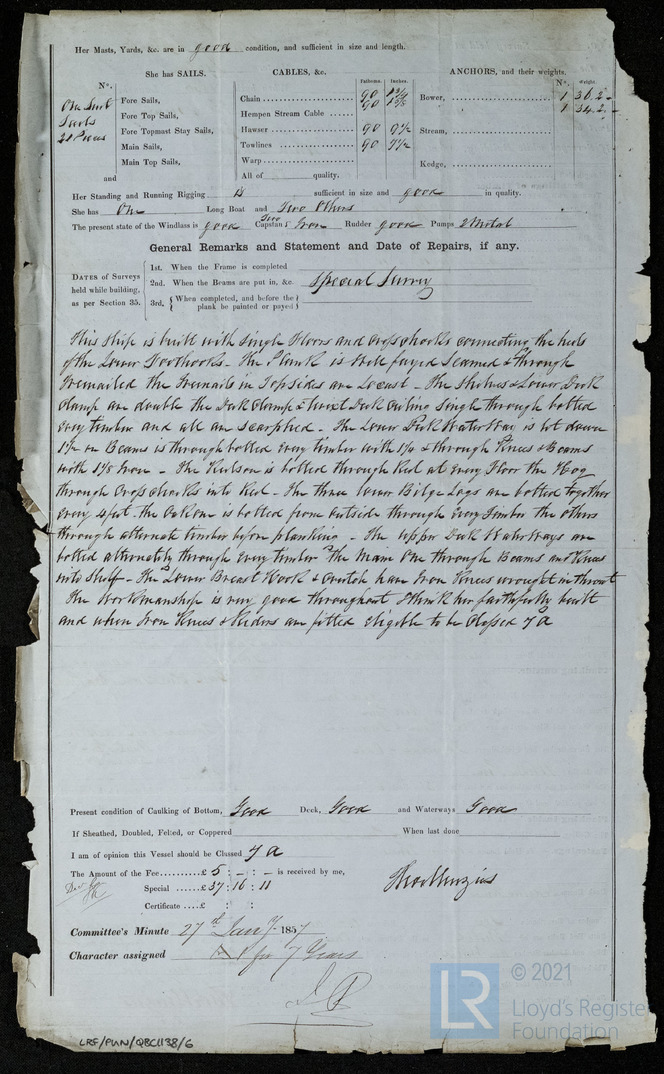 Her Masts, Yards, &c. are in good condition, and sufficient in size and length.
She has SAILS.
CABLES, &c.
ANCHORS, and their weights.
No.
Fathoms.
Inches.
No.
Weight.
One Suit
Sails
21 Pieces
and
Fore Sails,
Fore Top Sails,
Fore Topmast Stay Sails,
Main Sails,
Main Top Sails,
Chain 90
90
Hempen Stream Cable
Hawser 90 9½
Towlines 90 7½
Warp
All of quality.
Bower, 1 36.2.-
1 34.2.-
Stream,
Kedge,
Her Standing and Running Rigging is sufficient in size and good in quality.
She has One Long Boat and Two Others
The present state of the Windlass is good Capstan Two Iron Rudder good Pumps 2 Metal
General Remarks and Statement and Date of Repairs, if any.
DATES of Surveys held while building, as per Section 35.
1st. When the Frame is completed
2nd. When the Beams are put in, &c. Special Survey
3rd. {When completed, and before the plank be painted or payed}
This Ship is built with single Floors and Cross chocks connecting the heels
of the Lower Foothooks - The Plank is well payed Seamed & through
Treenailed the Treenails in Topsides are Locust - The Shelves & Lower Deck
Clamp are double the Deck Clamp & twixt Deck Ceiling single through bolted
every timber and all are scarphed - The Lower Deck Water Way is let down
1½ on Beams is through bolted every timber with 1¼ & through Knees & Beams
with 1⅛ Iron - The Keelson is bolted through Keel at every Floor the Hog
through Cross chocks into Keel - The three lower Bilge Logs are bolted together
every 4 feet. The is bolted from outside through every Timber the others
through alternate timber before planking - The Upper Deck Waterways are
bolted alternately through every timber & the Main One through Beams and Knees
into Shelf - The Lower Breast Hook & Crutch have Iron Knees wrought in throat
The Workmanship is very good throughout I think her faithfully built
and when Iron Knees & Riders are fitted eligible to be Classed 7 A
Present condition of Caulking of Bottom, Good Deck, Good and Waterways Good
If Sheathed, Doubled, Felted, or Coppered When last done
I am of opinion this Vessel should be Classed 7 A
The Amount of the Fee £ 5 : - : - is received by me,
Special £ 37 : 16 : 11
Certificate £ : :
Menzies
Committee's Minute 27th Jany 1857
Character assigned A 1 for 7 Years
LRF/PUN/QBC1138/6
LR
© 2021
Lloyd's Register
Foundation